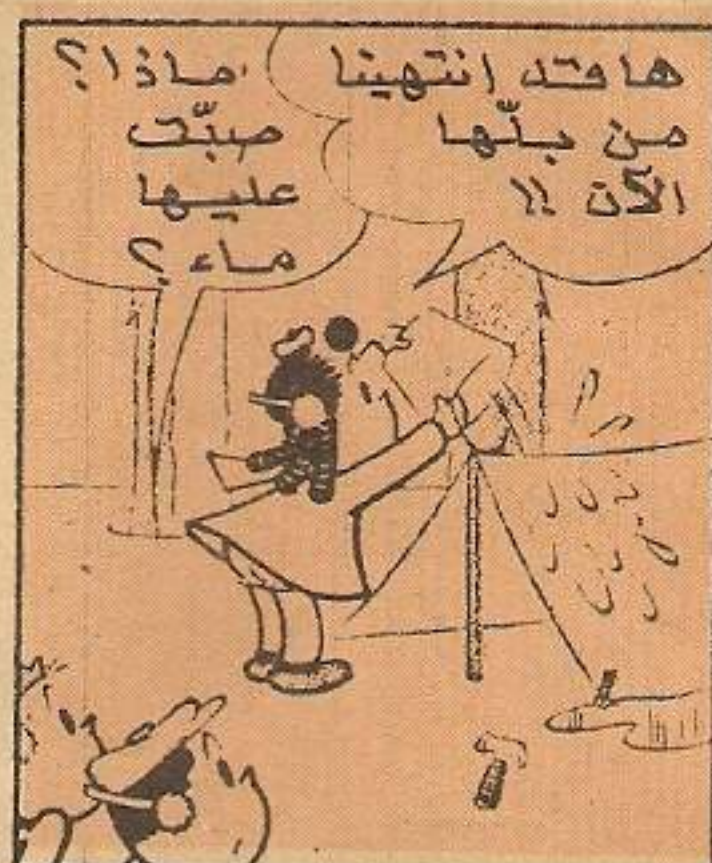 ها قد انتهينا
من بلّها
الآن !!
ماذا؟
صبّت
عليها
ماء؟